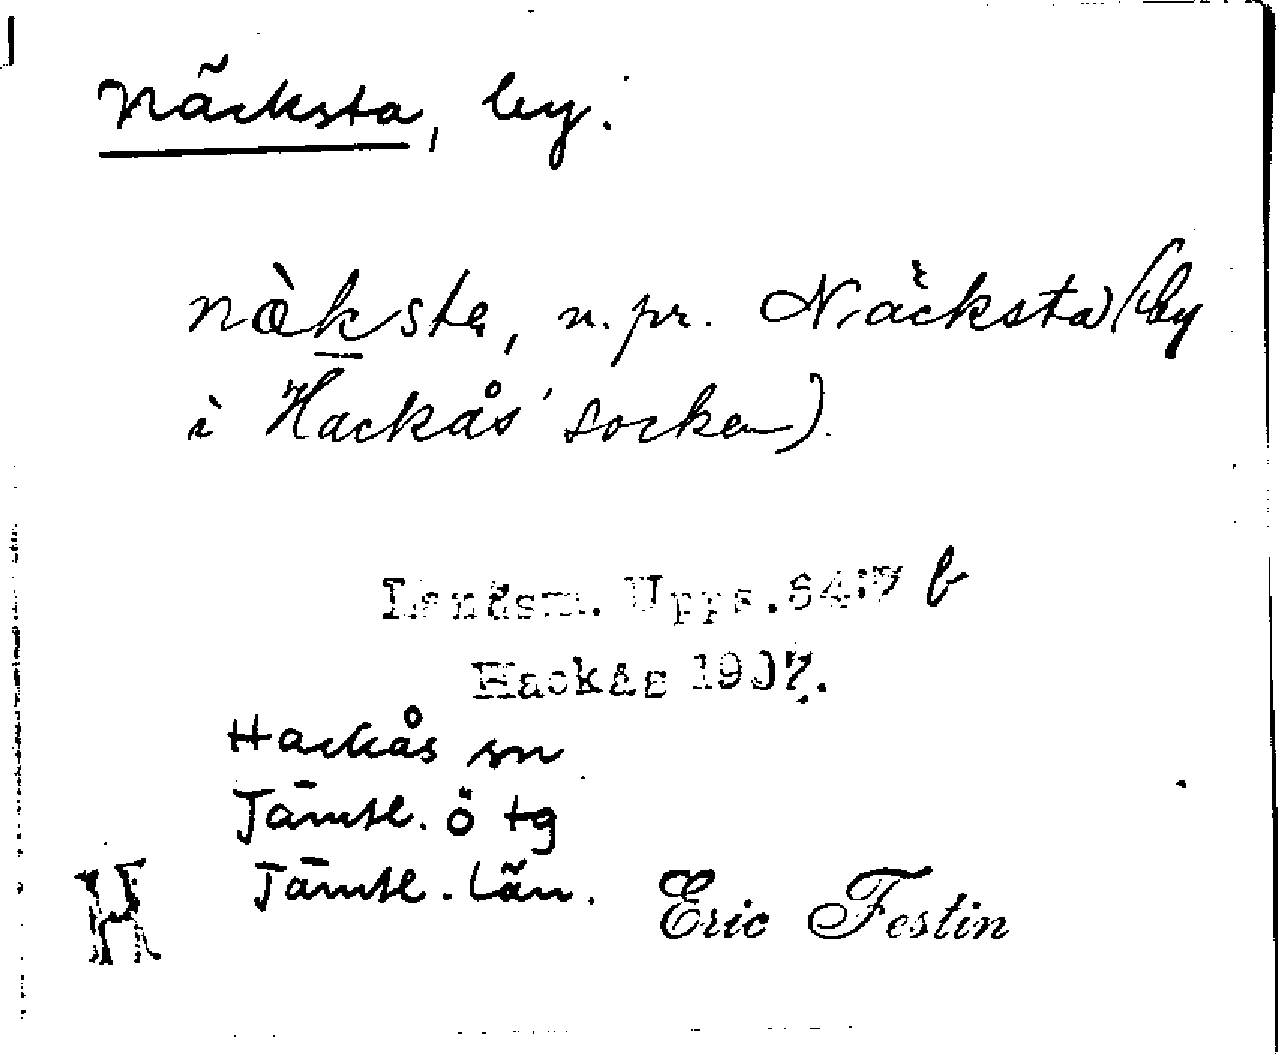 Näcksta, by.
næ̀ksta, n. pr. Näcksta (by
i Hackås socken).
Landsm. Upps. 64:7 b
Hackås 1907.
Hackås sn
Jämtl. ö tg
Jämtl. län.
H
Eric Festin